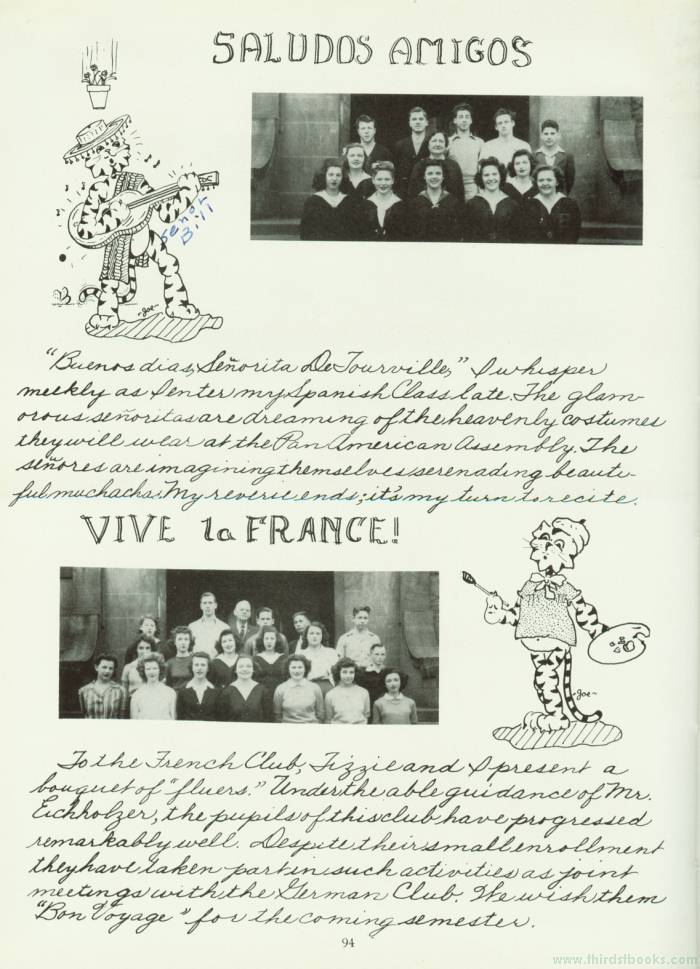 SALUDOS AMIGOS
Señor
Bill
-Joe-
"Buenos dias, Señorita DeTourville," I whisper
meekly as I enter my Spanish Class late. The glam-
orous señoritas are dreaming of the heavenly costumes
they will wear at the Pan American Assembly. The
señores are imagining themselves serenading beauti-
ful muchachs. My reverie ends; it's my turn to recite.
VIVE la FRANCE!
-Joe-
To the French Club, Tizzie and I present a
bouquet of "fluers." Under the able guidance of Mr.
Eichholzer, the pupils of this club have progressed
remarkably well. Despite their small enrollment
they have taken part in such activities as joint
meetings with the German Club. We wish them
"Bon Voyage" for the coming semester.
94
www.thirdstbooks.com